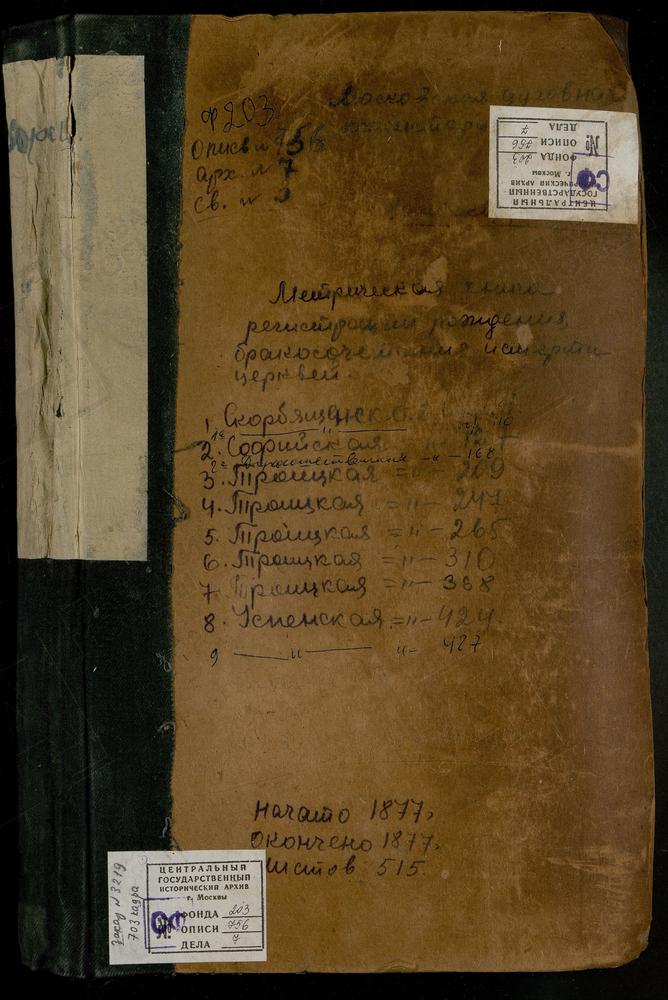 Московская духовная
Ф 203
Опись № 756
арх. № 7
св. № 3
ЦЕНТРАЛЬНЫЙ
ГОСУДАРСТВЕННЫЙ
ИСТОРИЧЕСКИЙ АРХИВ
г. Москвы
СФ
№ ФОНДА 203
ОПИСИ 756
ДЕЛА 7
Метрическая книга
регистрации рождения,
бракосочетания и смерти
церквей.
1. Скорбященская
2. Софийская
– 168
3. Троицкая =„– 209
4. Троицкая =„– 247
5. Троицкая =„– 265
6. Троицкая =„– 310
7. Троицкая =„– 368
8. Успенская =„– 424
9 —„— „– 427
начато 1877,
окончено 1877,
листов 515.
заказ № 3219
703 кадра
ЦЕНТРАЛЬНЫЙ
ГОСУДАРСТВЕННЫЙ
ИСТОРИЧЕСКИЙ АРХИВ
г. Москвы
СФ
№ ФОНДА 203
ОПИСИ 756
ДЕЛА 7